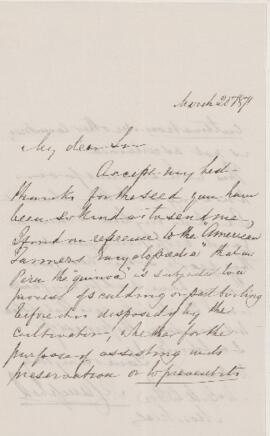 March 20 1871
My dear Sir
Accept my best
thanks for the seed you have
been so kind as to send me,
I find on reference to the "American
Farmers Encyclopedia" that in
Peru the "quinoa" is subjected to a
process of scalding or part boiling
before it is disposed of by the
cultivator, whether for the
purpose of assisting in its
preservation or to prevent its